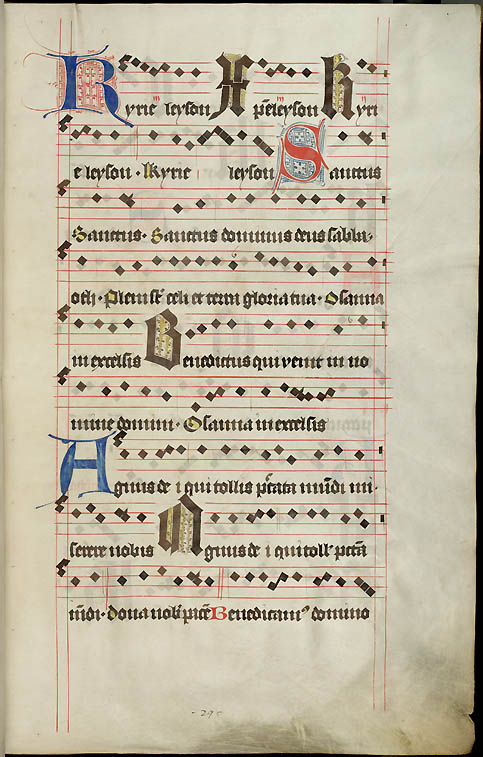 Kyrie leyson Xpeleyson Kyri
e leyson · Kyrie leyson Sanctus
Sanctus · Sanctus dominus deus saba
oth · Pleni st celi et terra gloria tua · Osanna
in excelsis Benedictus qui venit in no
mine domini · Osanna in excelsis
Agnus de i qui tollis pctata mudi mi
serere nobis Agnus de i qui toll' pctā
mūdi · dona nob pacē Benedicam' domino